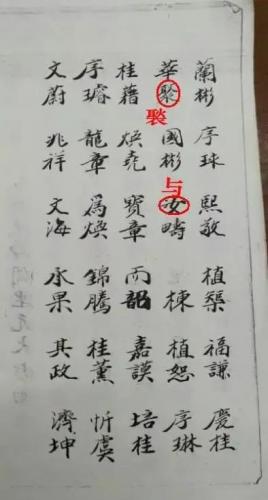 蘭彬 序球 熙敬 植榘 福謙 慶桂
華 國彬 疇 棟 植恕 序琳
褧
与
桂藉 煥堯 寶章 而韶 嘉謨 培桂
序璿 龍章 為煥 錦騰 桂薰 忻虞
文蔚 兆祥 文海 永果 其政 濟坤